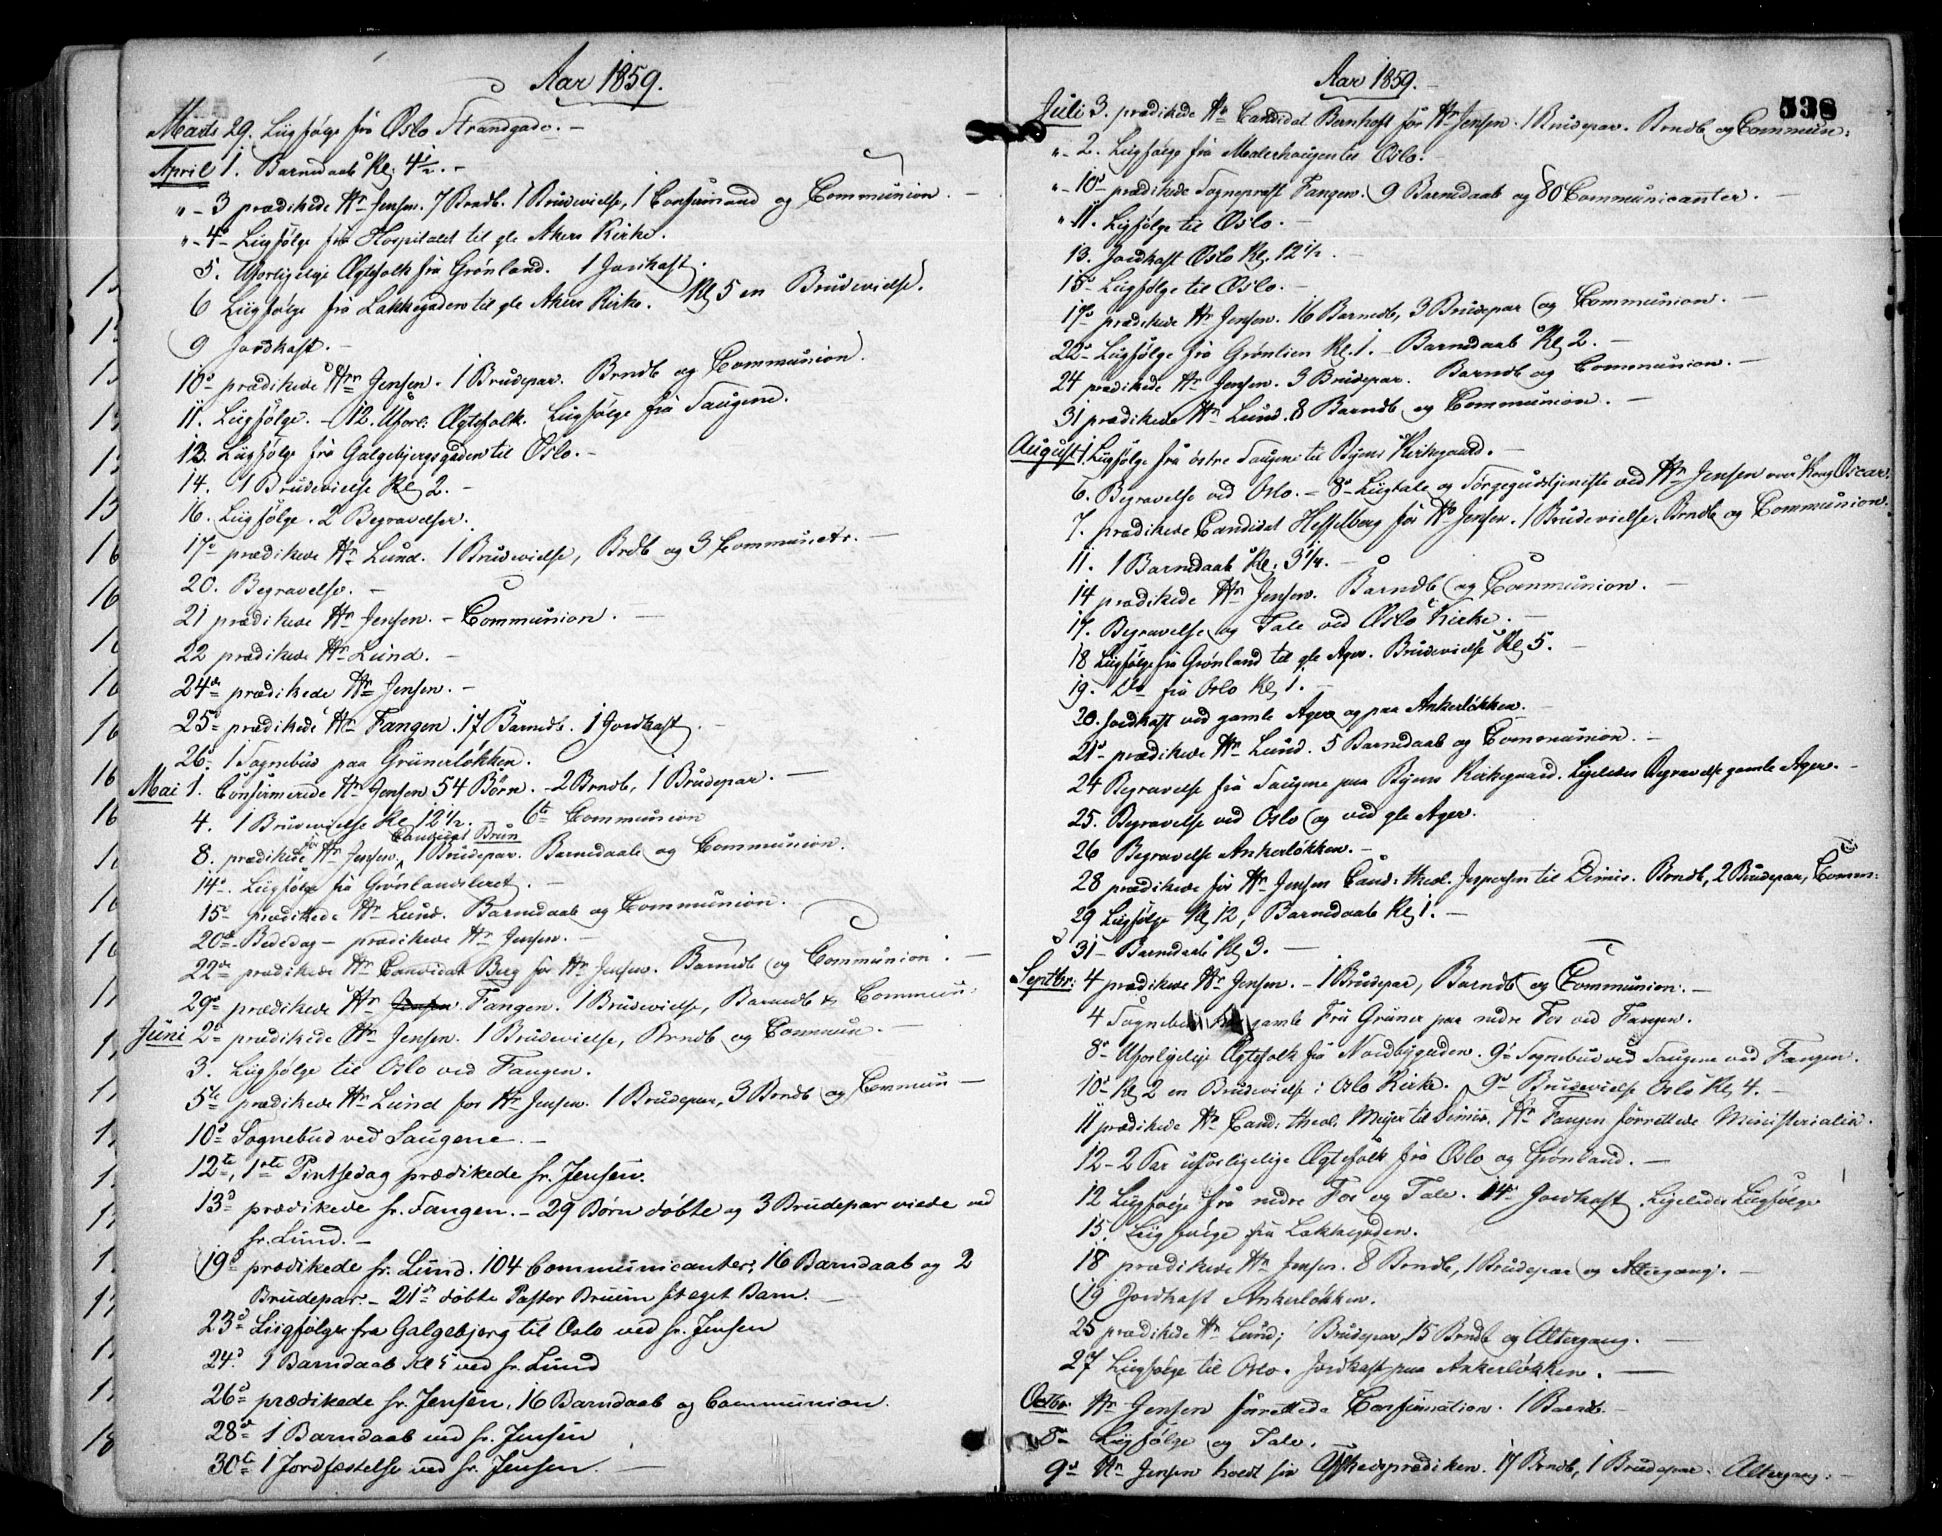 Aar 1859.
Marts 29. Liigfølge fra Oslo Strandgade. -
April 1. Barnedaab Kl. 4½. -
" - 3 prædikede Hr Jensen. 7 Brndb. 1 Brudevielse, 1 Confirmand og Communion. -
" - 4de Liigfølge fra Hospitalet til gle Akers Kirke.
5. Uforligelige Ægtefolk fra Grønland. 1 Jordkast.
6 Liigfølge fra Lakkegaden til gle Akers Kirke. Kl 5 en Brudevielse.
9 Jordkast. -
10de prædikede Hr Jensen. 1 Brudepar. Brndb og Communion.
11. Liigfølge. - 12. Uforl. Ægtefolk. Liigfølge fra Saugene.
13. Liigfølge fra Galgebjergsgaden til Oslo. -
14. 1 Brudevielse Kl 2. -
16. Liigfølge. 2 Begravelser.
17de prædikede Hr Lund. 1 Brudevielse, Brdb og 3 Communictr. -
20. Begravelse. -
21 prædikede Hr Jensen. - Communion. -
22 prædikede Hr Lund. -
24de prædikede Hr Jensen. -
25de prædikede Hr Fangen. 17 Barnedb. 1 Jordkast. -
26. 1 Sognebud paa Grünerløkken.
Mai 1. Confirmerede Hr Jensen 54 Børn. - 2 Brndb, 1 Brudepar. -
4. 1 Brudevielse Kl 12½. 6te Communion
8. prædikede for Hr Jensen Candidat Brun 1 Brudepar. Barnedaab og Communion.
14de Liigfølge fra Grønlandsleret. -
15de prædikede Hr Lund. Barnedaab og Communion.
20de Bededag - prædikede Hr Jensen. -
22de prædikede Hr Candidat Berg for Hr Jensen. Barnedb og Communion. -
29de prædikede Hr Jensen Fangen. 1 Brudevielse, Barnedb & Commun:
Juni 2den prædikede Hr Jensen. 1 Brudevielse, Brndb og Commun. -
3. Liigfølge til Oslo ved Fangen.
5te prædikede Hr Lund for Hr Jensen. 1 Brudepar, 3 Brndb og Commun -
10de Sognebud ved Saugene. -
12te, 1ste Pintsedag prædikede hr. Jensen.
13de prædikede hr. Fangen. - 29 Børn døbte og 3 Brudepar viede ved
hr. Lund. -
19de prædikede hr. Lund. 104 Communicanter, 16 Barndaab og 2
Brudepar. - 21de døbte Pastor Bruun sit eget Barn. -
23de Liigfølge fra Galgebjerg til Oslo ved hr. Jensen
24de 1 Barndaab Kl 5 ved hr. Lund
26de prædikede hr. Jensen, 16 Barndaab og Communion.
28de 1 Barndaab ved hr. Jensen
30te 1 Jordfæstelse ved hr. Jensen. -
Aar 1859. -
538
Juli 3. prædikede Hr Candidat Bernhoft for Hr Jensen. 1 Brudepar. Brndb og Commun:
" - 2. Liigfølge fra Maderhougen til Oslo. -
" - 10de prædikede Sognepræst Fangen. 9 Barnedaab og 80 Communicanter. -
" 11. Ligfølge til Oslo. -
13. Jordkast Oslo Kl. 12½. -
15de Liigfølge til Oslo. -
17de prædikede Hr Jensen. 16 Barnedb, 3 Brudepar og Communion. -
22de Liigfølge fra Grønlien Kl. 1. - Barnedaab Kl 2. -
24 prædikede Hr Jensen. 3 Brudepar. Barndb og Communion. -
31 prædikede Hr Lund. 8 Barndb og Communion. -
August 1. Liigfølge fra østre Saugene til Byens Kirkegaard. -
6. Begravelse ved Oslo. - 8de Liigtale og Sørgegudstjeneste ved Hr Jensen over Kong Oscar.
7. prædikede Candidat Hesselberg for Hr Jensen. 1 Brudevielse. Brndb og Communion.
11. 1 Barnedaab Kl. 3¼. -
14 prædikede Hr Jensen. Barndb og Communion. -
17. Begravelse og Tale ved Oslo Kirke. -
18 Liigfølge fra Grønland til gle Ager. Brudevielse Kl 5. -
19. Do fra Oslo Kl 1. -
20. Jordkast ved gamle Ager og paa Ankerløkken. -
21de prædikede Hr Lund. 5 Barnedaab og Communion. -
24 Begravelse fra Saugene paa Byens Kirkegaard. Ligeledes Begravelse gamle Ager. -
25. Begravelse ved Oslo og ved gle Ager.
26 Begravelse Ankerløkken. -
28 prædikede for Hr Jensen Cand: theol. Jespersen til Dimis. Brndb, 2 Brudepar, Comm:
29 Liigfølge Kl 12, Barnedaab Kl 1. -
31 - Barnedaab Kl 3. -
Septbr: 4 prædikede Hr Jensen. - 1 Brudepar, Barndb og Communion. -
4 Sognebud hos gamle Fru Grüner paa nedre Fos ved Fangen.
8de Uforligelige Ægtefolk fra Nordbygaden. 9de Sognebud ved Saugene ved Fangen.
10de Kl 2 en Brudevielse i Oslo Kirke. 9de Brudevielse Oslo Kl 4. -
11 prædikede Hr Cand: theol. Meyer til Dimis. Hr Fangen forrettede Ministerialia.
12 - 2 Par uforligelige Ægtefolk fra Oslo og Grønland. -
12 Liigfølge fra nedre Fos og Tale. 14de Jordkast. Ligeledes Liigfølge
15. Liigfølge fra Lakkegaden.
18 prædikede Hr Jensen. 8 Brndb, 1 Brudepar og Altergang. -
19 Jordkast Ankerløkken.
25 prædikede Hr Lund; Brudepar, 15 Brndb og Altergang. -
27 Liigfølge til Oslo. Jordkast paa Ankerløkken. -
Octbr. Hr Jensen forrettede Confirmation. 1 Barnb. -
5te Liigfølge og Tale.
9de Hr Jensen holdt sin Afskedsprædiken. 17 Brndb, 1 Brudepar. Altergang. -